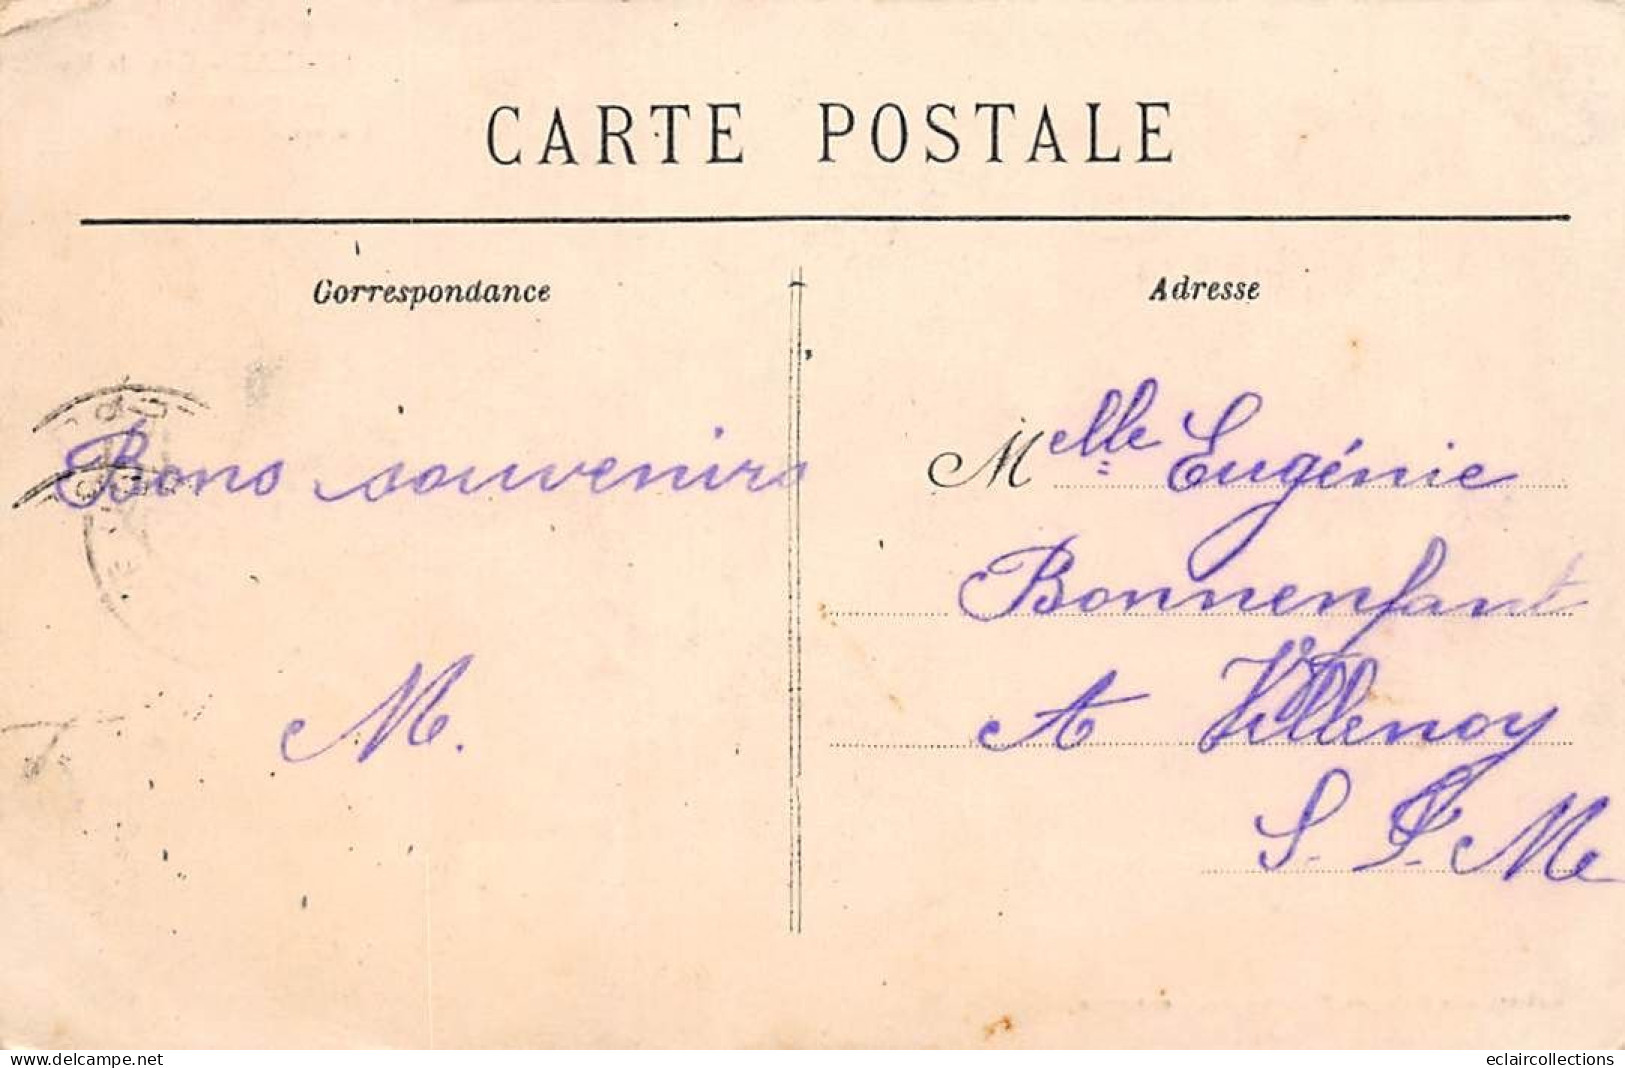 CARTE POSTALE
Correspondance
Adresse
Bons souvenirs
M.
Melle Eugénie
Bonnenfant
A Villenoy
S. &. M
www.delcampe.net
eclaircollections